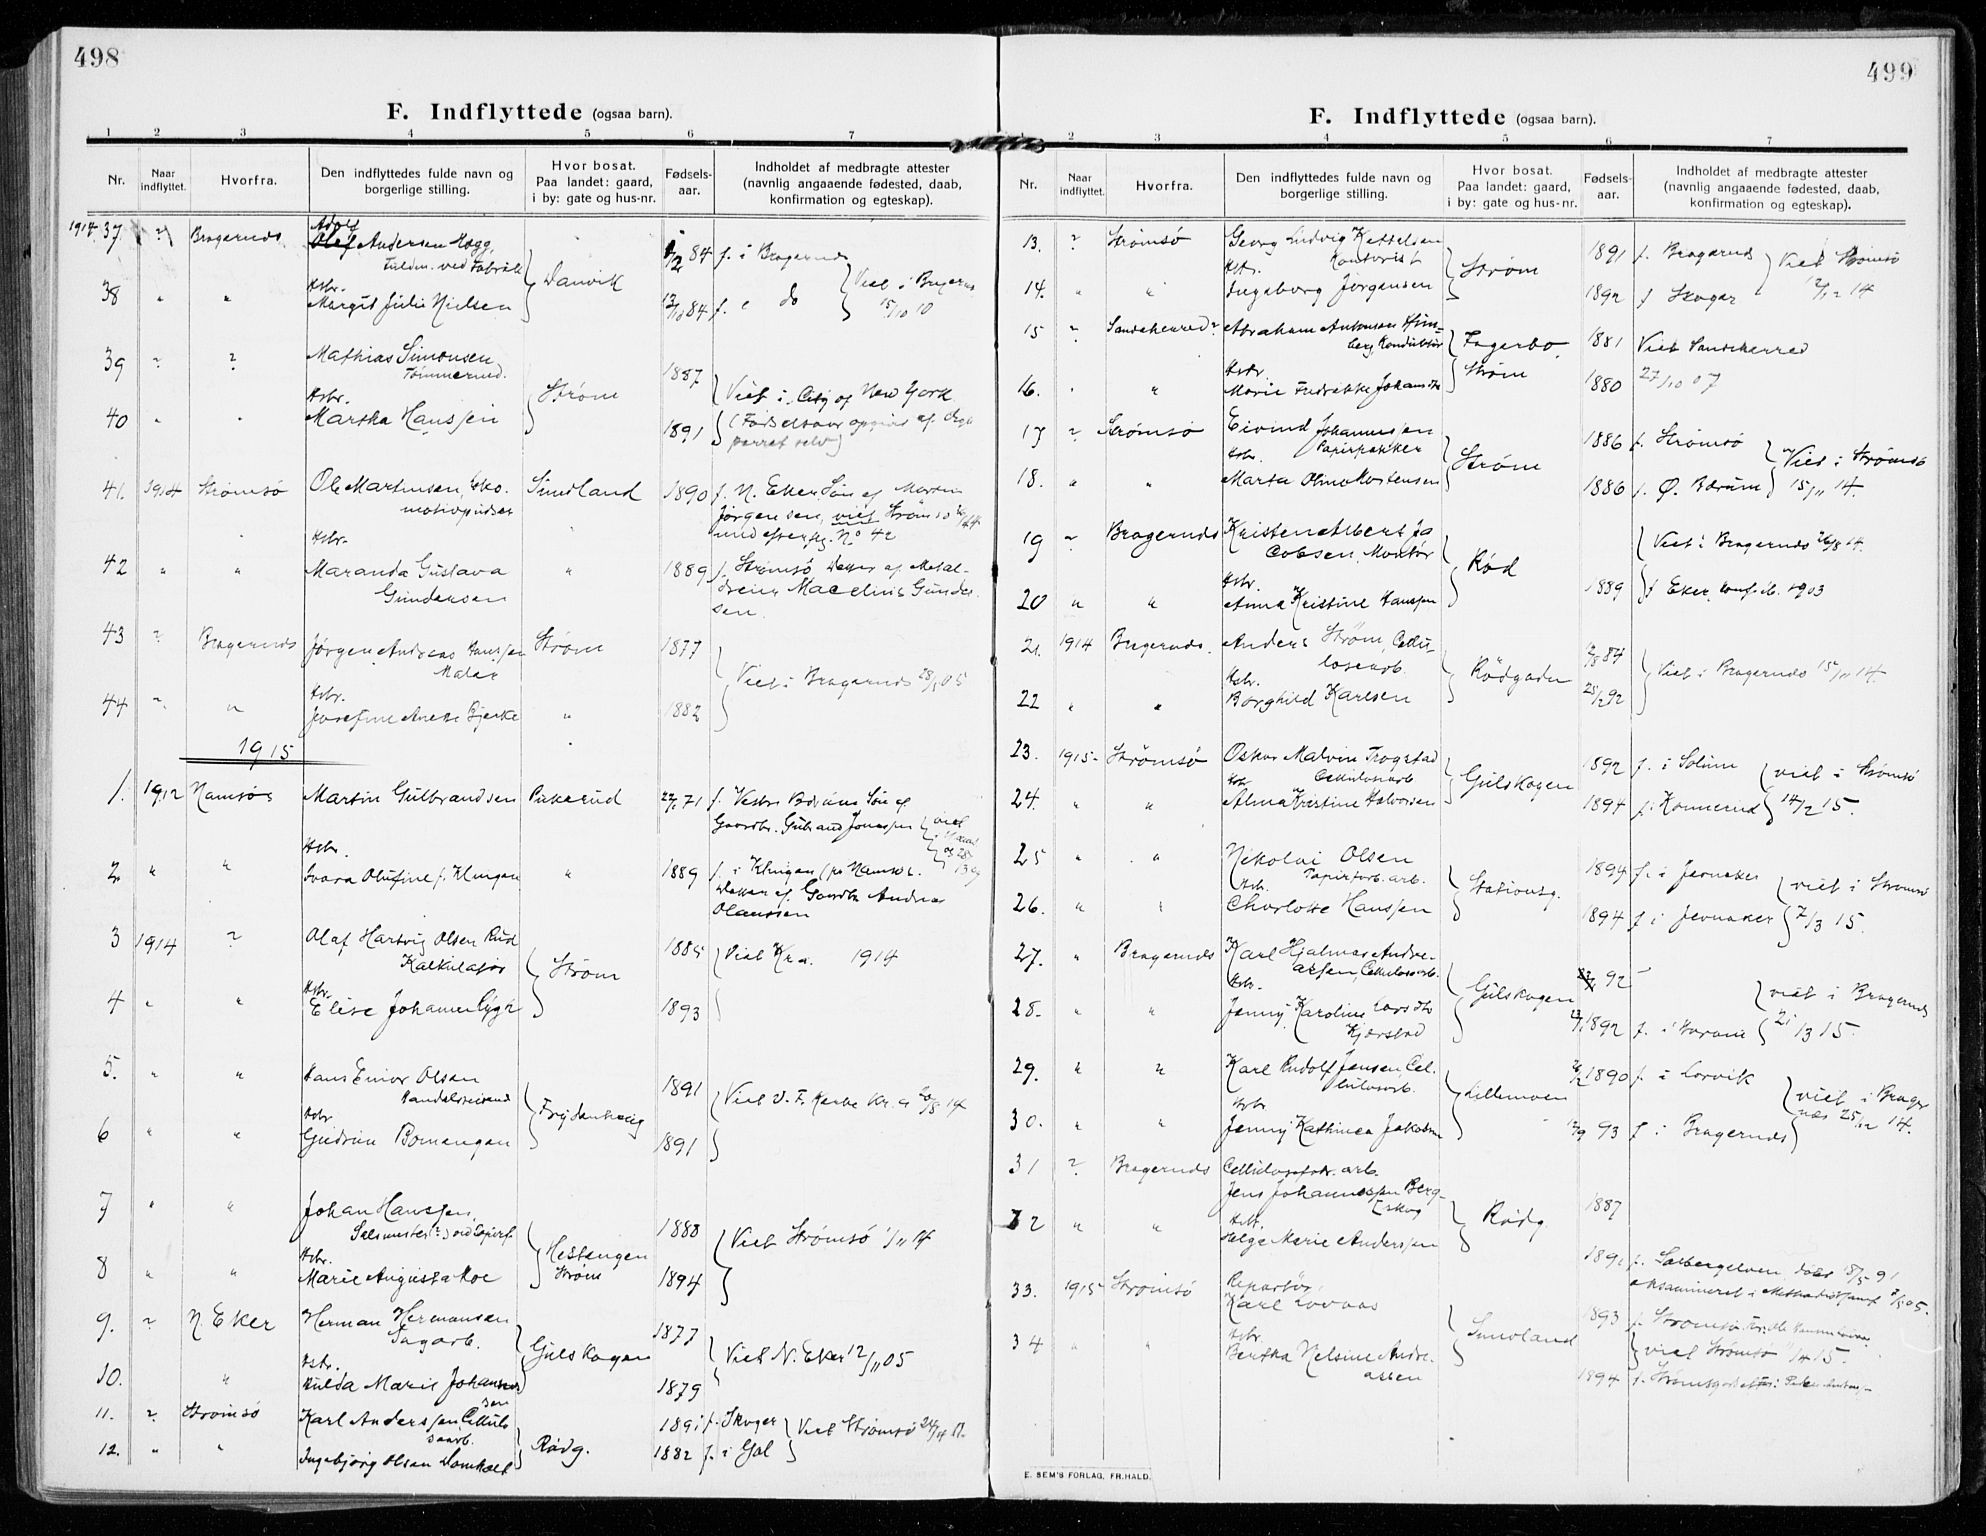 498
F. Indflyttede (ogsaa barn).
1 2 3 4 5 6 7
Nr.
Naar indflyttet.
Hvorfra.
Den indflyttedes fulde navn og
borgerlige stilling.
Hvor bosat.
Paa landet: gaard,
i by: gate og hus-nr.
Fødsels-
aar.
Indholdet af medbragte attester
(navnlig angaaende fødested, daab,
konfirmation og egteskap).
1914 37 ? Bragernes Adolf
Andersen Hagg, 84 f. i Bragernes
Hstr. Danvik
38 " " Margit Julie Nielsen 84 f. i do Viet i Bragernes 15/10 10
39 ? ? Mathias Simonsen 1887
Tømmermd.
Hstr. Strøm Viet i City of New York
40 " " Martha Hanssen 1891 (Fødselsaar opgivet af
parret selv)
41. 1914 Strømsø Ole Martinsen, Loko. Sundland 1890 f. N. Eker Søn af Morten
motivpudser Jørgensen, viet Strømsø
Hstr. med efterflg. No 42
42 " " Maranda Gustava " 1889 f. Strømsø Datter af Metal-
Gundersen dreier Marelius Gunder-
sen
43 ? Bragernes Jørgen Andreas Hanssen Strøm 1877
Maler Viet i Bragernes 28/1 05
Hstr.
44 ? " Josefine Anette Bjerke " 1882
1915
1. 1912 Namsos Martin Gulbrandsen Pukerud 71 f. Vestre Bærum Søn af
Gaardbr. Gulbrand Jonassen
Hstr.
2 " " Svara Olufine f. Klingen " 1889 f. i Klingen pr Namsos.
Datter af Gaardbr Andreas
Olaussen
3 1914 ? Olaf Hartvig Olsen Rud 1885 Viet Kr.a. 1914
Kalkulatør Strøm
Hstr.
4 " " Elise Johanne 1893
5. " " Hans Einar Olsen 1891
Handelsreisende Viet V. F. Kr. a 14
Hstr.
6 " " Gudrun Bomangen 1891
7 " " Johan Hanssen, 1888
Hstr. Hestengen Viet Strømsø 1/11 14
8 " " Marie Augusta Moe Strøm 1894
9. ? N Eker Herman Hermansen 1877
Sagarb. Gulskogen Viet N. Eker 12/11 05
Hstr.
10. " Hulda Marie Johannes- 1879
sen
11. ? Strømsø Karl Anderssen Cellulo 1891 f. Skoger Viet Strømsø
searb. Rødg.
12. " " Ingebjørg Olsen 1882 f. i Gol
499
F. Indflyttede (ogsaa barn).
1 2 3 4 5 6 7
Nr.
Naar
indflyttet.
Hvorfra.
Den indflyttedes fulde navn og
borgerlige stilling.
Hvor bosat.
Paa landet: gaard,
i by: gate og hus-nr.
Fødsels-
aar.
Indholdet af medbragte attester
(navnlig angaaende fødested, daab,
konfirmation og egteskap).
13. ? Strømsø Georg Ludvig Kettelsen 1891 f. Bragernes Viet Strømsø
Hstr. Kontorist Strøm
14. " " Ingeborg Jørgensen 1892 f Skoger 12/12 14
15 ? Sandeherred? Abraham Antonsen Him- Fagerbo, 1881 Viet Sandeherred
berg, Konduktør
Hstr. Strøm
16. " " Marie Fredrikke Johansdtr 1880 27/10 07
17 ? Strømsø Eivind Johannessen 1886 f. Strømsø
Hstr. Papirpakker Strøm Viet i Strømsø
18. " " Marta Olina Mortensen 1886 f. Ø. Bærum 15/11 14.
19 ? Bragernes Kristen Albert Ja Viet i Bragernes 26/8 14.
cobsen, Montør Rød
Hstr.
20 " " Anna Kristine Hanssen 1889 f Eker, konf. ib. 1903
21. 1914 Bragernes. Anders Strøm, Cellu- 84
losearb. Rødgaden Viet i Bragernes 15/11 14.
Hstr.
22 " " Borghild Karlsen 92
23. 1915 Strømsø Oskar Malvin Trogstad 1892 f. i Solum viet i Strømsø
Hstr. Cellulosearb Gulskogen
24. " " Alma Kristine Halvorsen 1894 f. Konnerud 14/2 15.
25 " " Nikolai Olsen 1894 f. i Jevnaker viet i Strømsø
Hstr. Papirfarb. arb. Stationsg.
26. " " Charlotte Hanssen 1894 f i Jevnaker 7/3 15.
27. " Bragernes Karl Hjalmar Andre- 92
assen, Cellulosearb. Gulskogen viet i Bragernes
Hstr.
28. " " Jenny Karoline Larsdtr 1892 f. i Horum 21/3 15.
Kjærstad
29. " " Karl Rudolf Jensen, Cel- 1890 f. i Larvik
lulosearb. Lillemoen viet i Brager
Hstr. nes 25/12 14.
30. " " Jenny Kathinca Jakobsen 12/9 93 f i Bragernes
31 ? Bragernes Cellulosefabr. arb.
Jens Johannessen Berg- 1887
skog Rødg.
32 " " Hstr.
Helga Marie Anderssen 1891 f. Solbergelven døbt 18/5 91
33. 1915 Strømsø Reparatør,
Karl Lovaas 1893 f. Strømsø
Hstr. Sundland viet Strømsø
34 " " Bertha Nelsine Andre- 1894
assen
E. SEM'S FORLAG, FR.HALD.